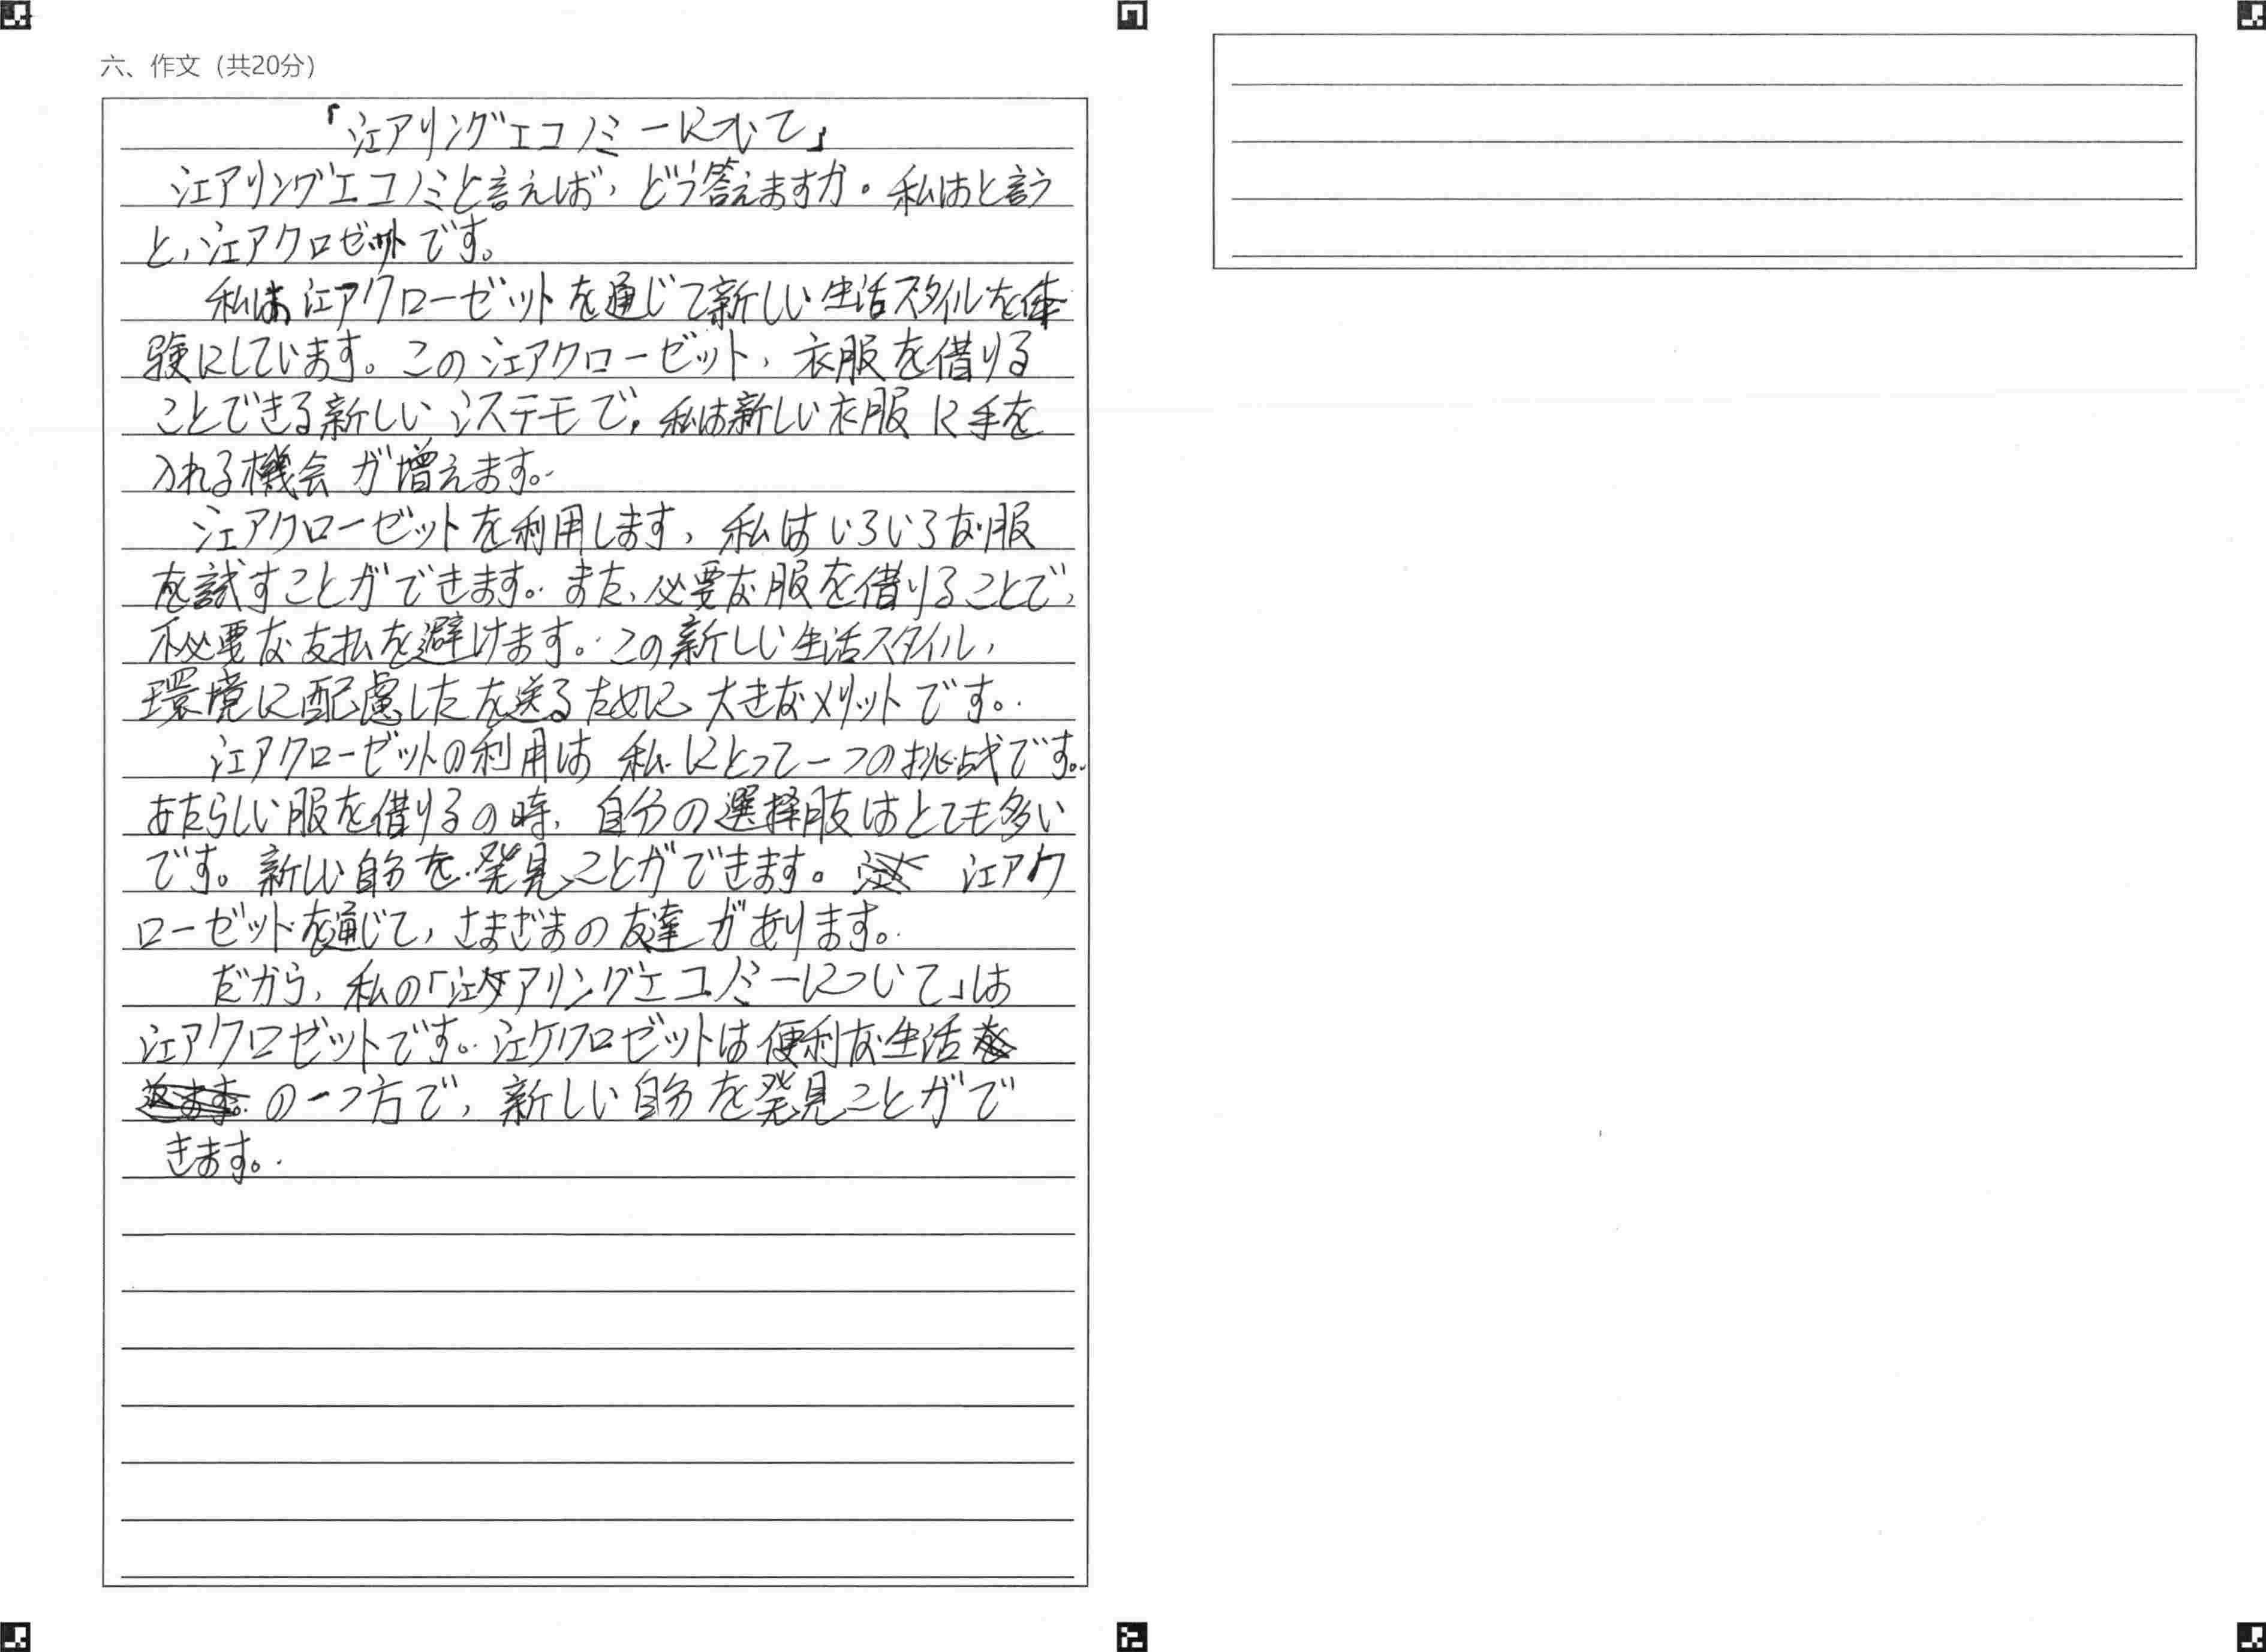 六、作文（共20分）
「シェアリングエコノミーについて」
シェアリングエコノミと言えば、どう答えますか。私はと言う
と、シェアクロゼットです。
私は、シェアクローゼットを通じて新しい生活スタイルを体
験にしています。このシェアクローゼット、衣服を借りる
ことできる新しいシステモで、私は新しい衣服に手を
入れる機会が増えます。
シェアクローゼットを利用します、私はいろいろな服
を試すことができます。また、必要な服を借りることで、
不必要な支払を避けます。この新しい生活スタイル、
環境に配慮したを送るために、大きなメリットです。
シェアクローゼットの利用は私にとって一つの挑戦です。
あたらしい服を借りるの時、自分の選択肢はとても多い
です。新しい自分を発見ことができます。シェアク
ローゼットを通じて、さまざまの友達があります。
だから、私の「シェアリングエコノミーについて」は
シェアクロゼットです。シェアクロゼットは便利な生活
の一つ方で、新しい自分を発見ことがで
きます。